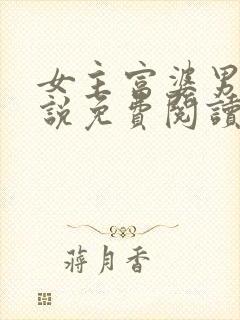 女主富婆男
說免費閱讀
蔣月香